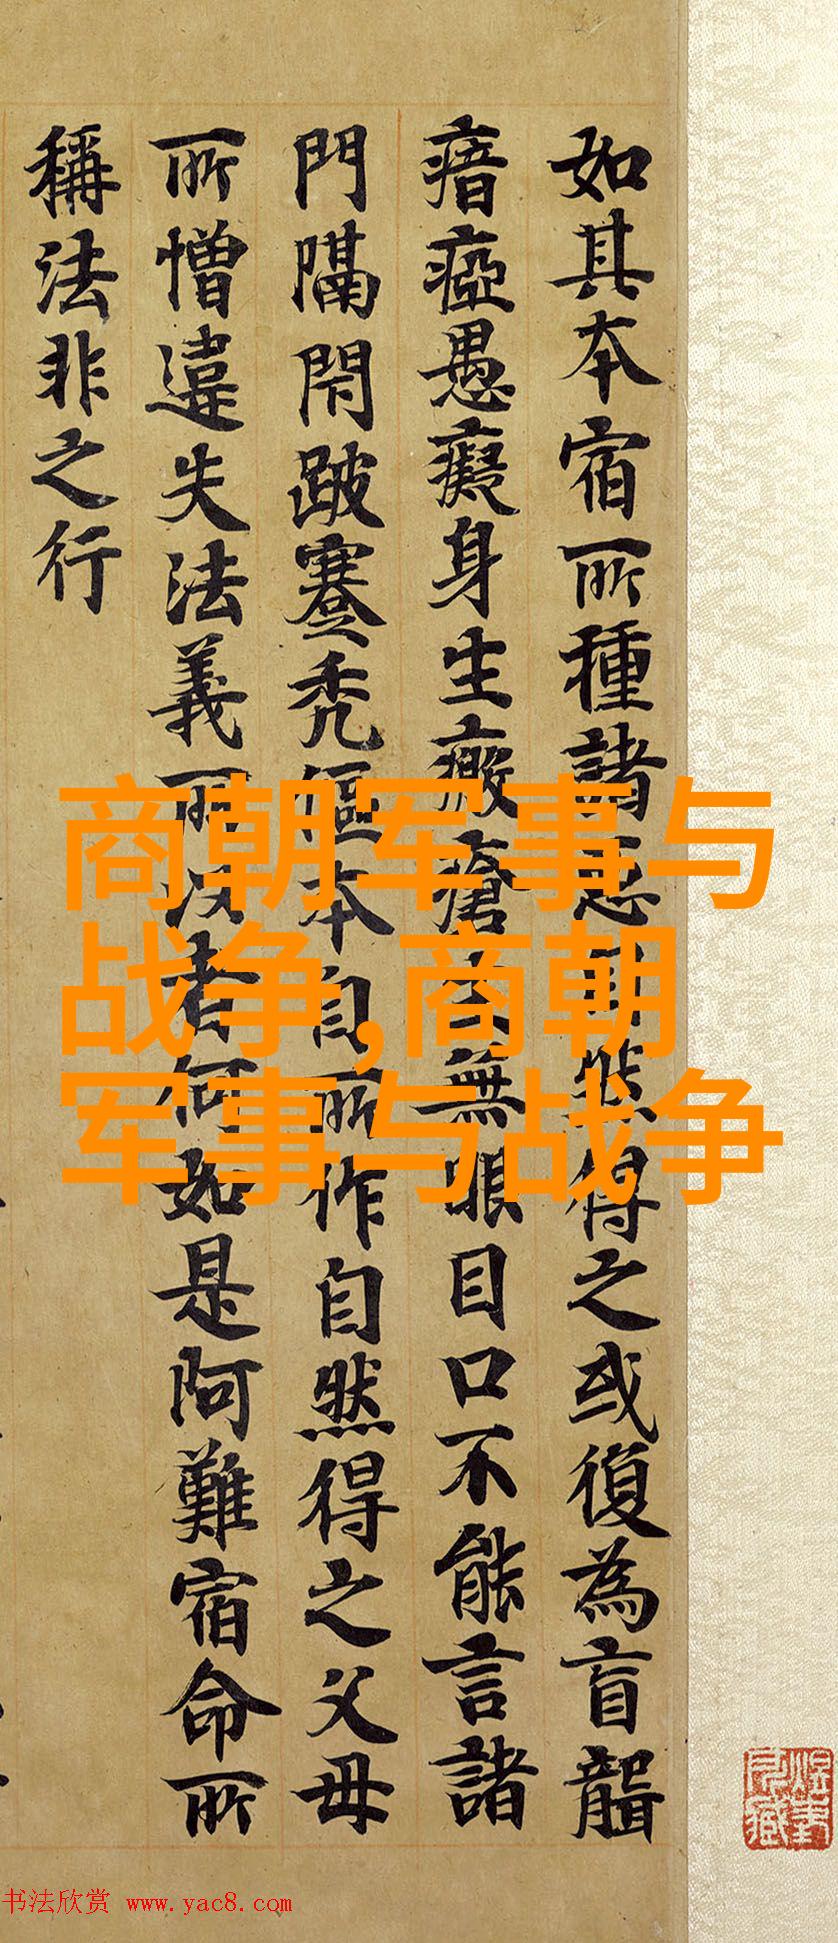 如其本宿所種諸惡自然得之或復為盲聾
瘖瘂愚癡身生癥瘡無眼目口不能言諸
門隔閇跛蹇禿傴本自所作自然得之父母
所憎違失法義所者何如是阿難宿命所
稱法非之行
商朝军事与
战争,商朝
军事与战争
书法欣赏 www.yac8.com